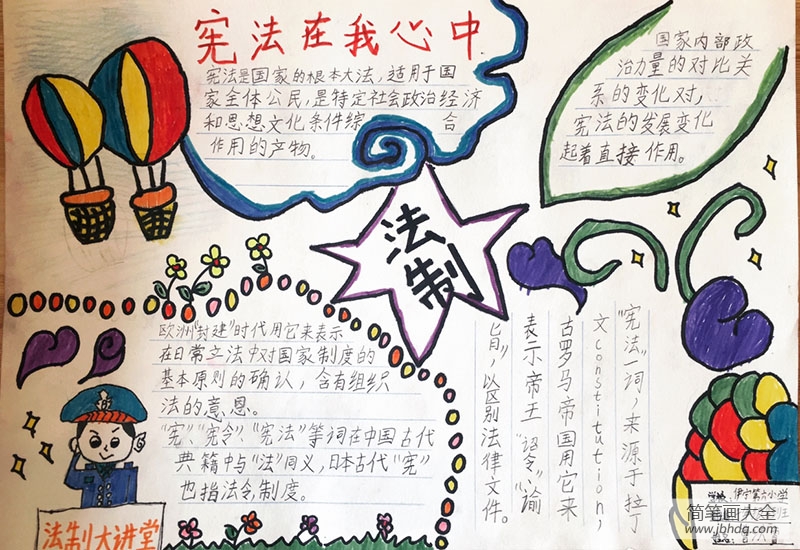 宪法在我心中
宪法是国家的根本大法，适用于国
家全体公民，是特定社会政治经济
和思想文化条件综合
作用的产物。
国家内部政
治力量的对比关
系的变化对，
宪法的发展变化
起着直接作用。
法制
欧洲“封建”时代用它来表示
在日常立法中对国家制度的
基本原则的确认，含有组织
法的意思。
“宪”、“宪令”、“宪法”等词在中国古代
典籍中与“法”同义，日本古代“宪”
也指法令制度。
“宪法”一词，来源于拉丁
文constitution，
古罗马帝国用它来
表示帝王“诏令”、“谕
旨”，以区别法律文件。
法制大讲堂
学校：伊宁第六小学
简笔画大全
www.jbhdq.com